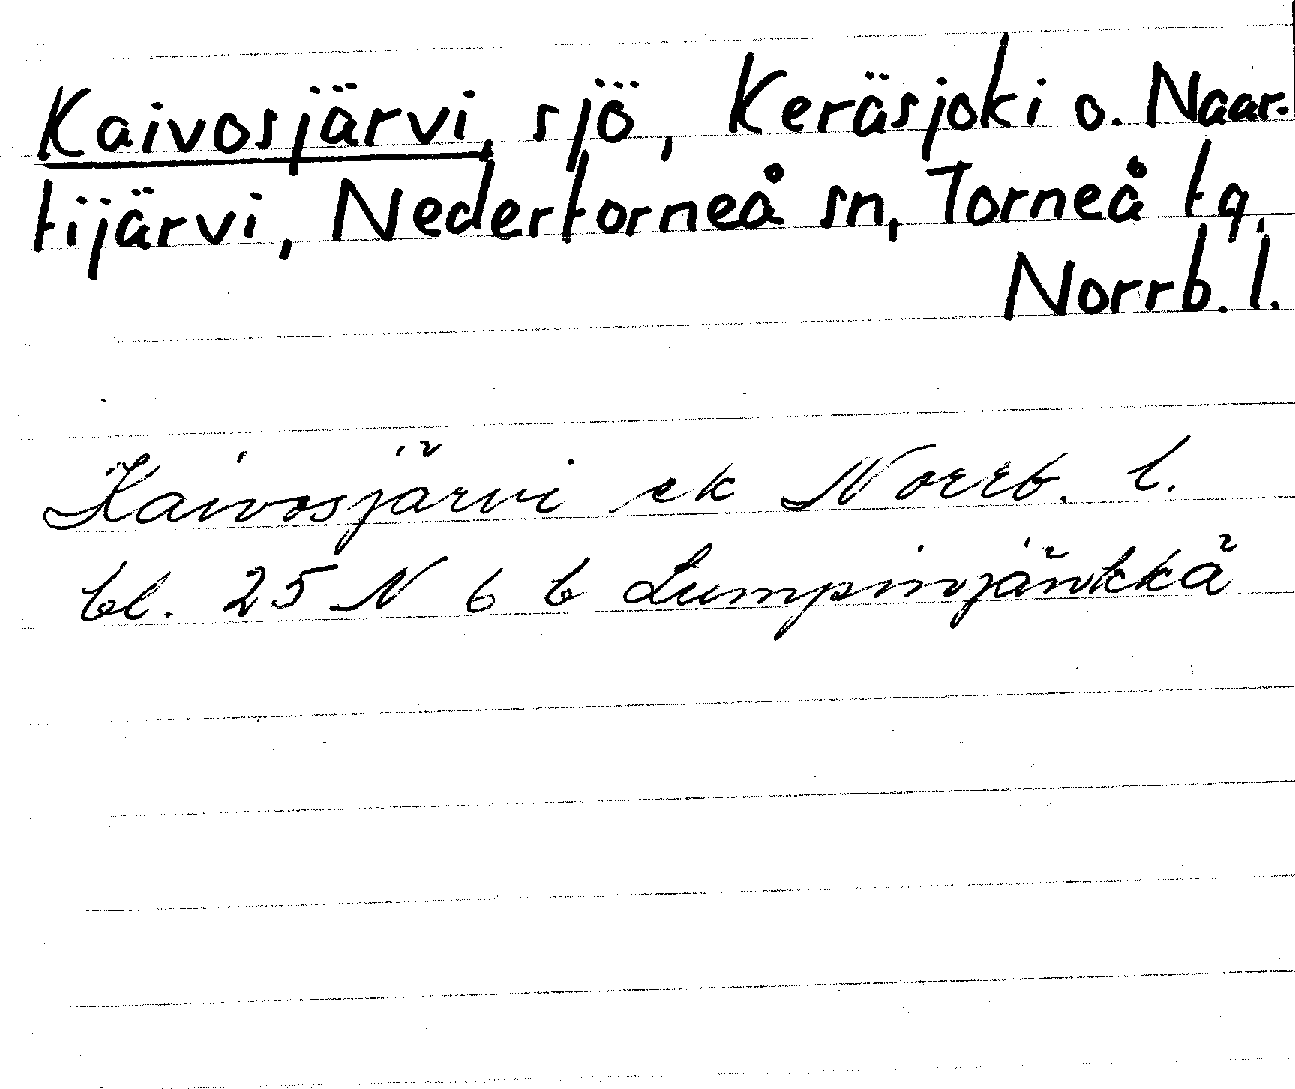 Kaivosjärvi, sjö, Keräsjoki o. Naar-
tijärvi, Nedertorneå sn, Torneå tg,
Norrb. l.
Kaivosjärvi ek Norrb. l.
bl. 25 N 6 b Lumpinjänkkä